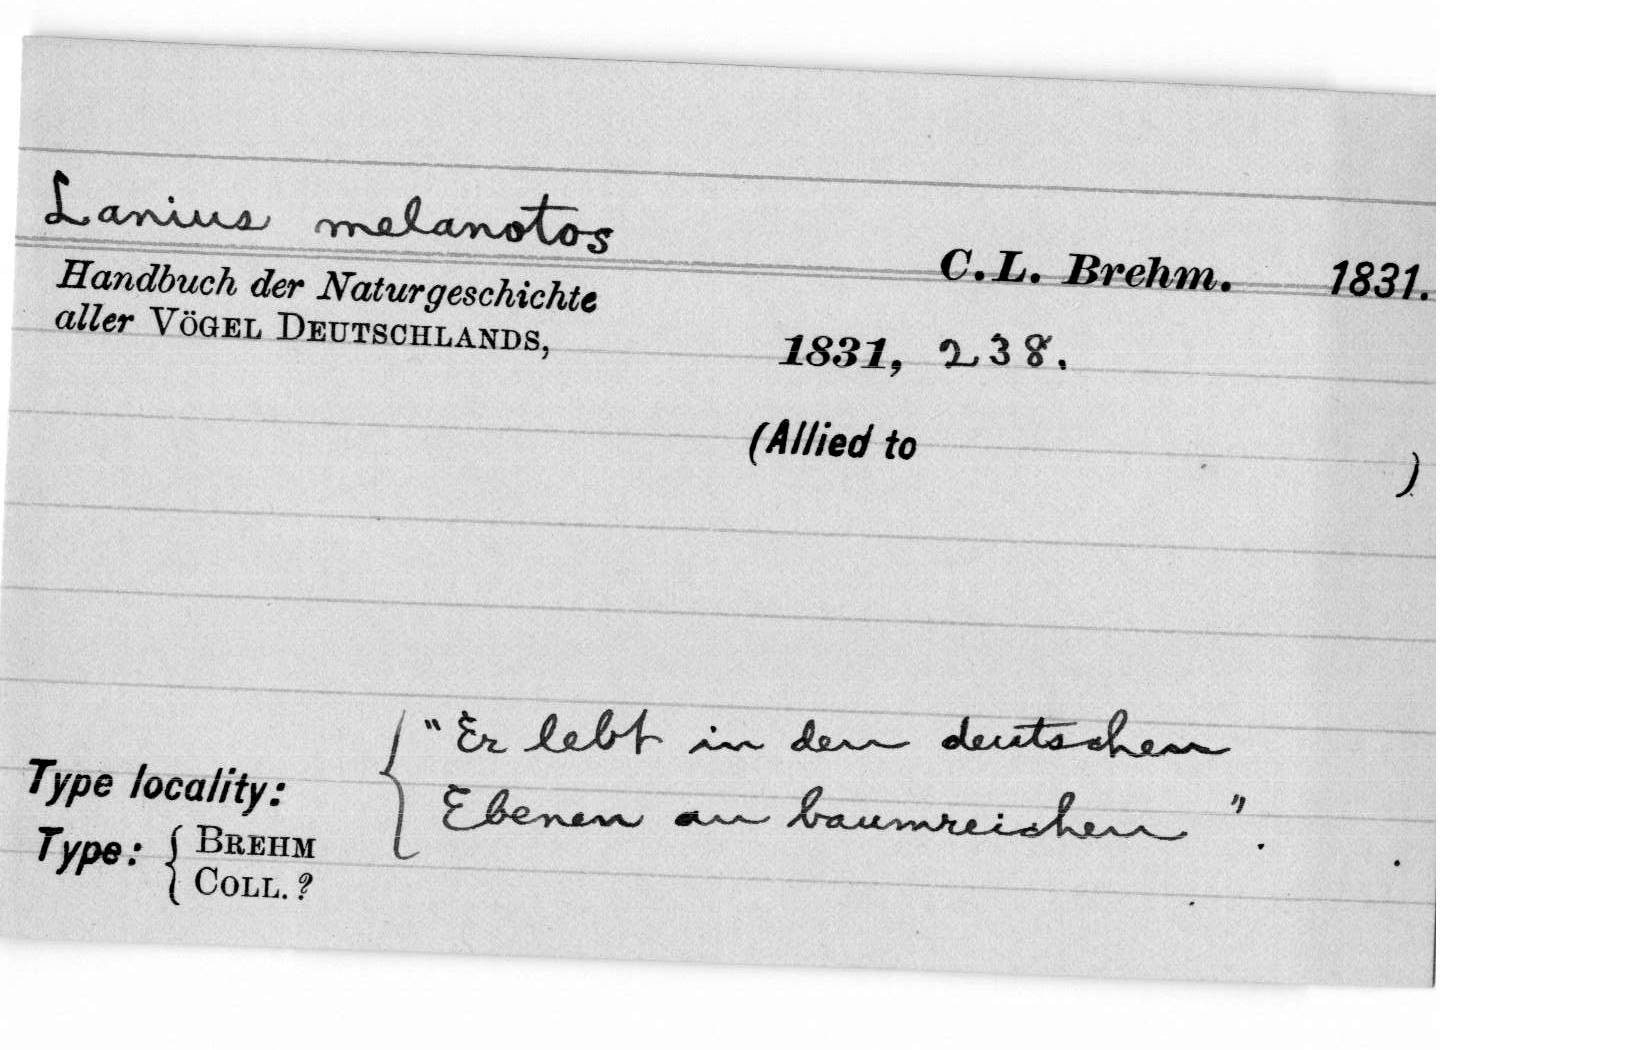 Lanius melanotos
C.L. Brehm. 1831.
Handbuch der Naturgeschichte
aller VÖGEL DEUTSCHLANDS,
1831, 238.
(Allied to )
Type locality: { "Er lebt in den deutschen
Ebenen an baumreichen".
Type: { BREHM
COLL. ?